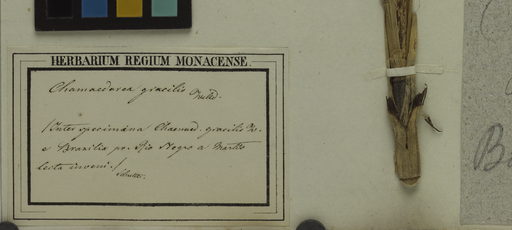 HERBARIUM REGIUM MONACENSE.
Chamaedorea gracilis
(Inter specimina Chamaed. gracilis
e Brasilia pr. Rio Negro a Martio
lecta inveni.)
B